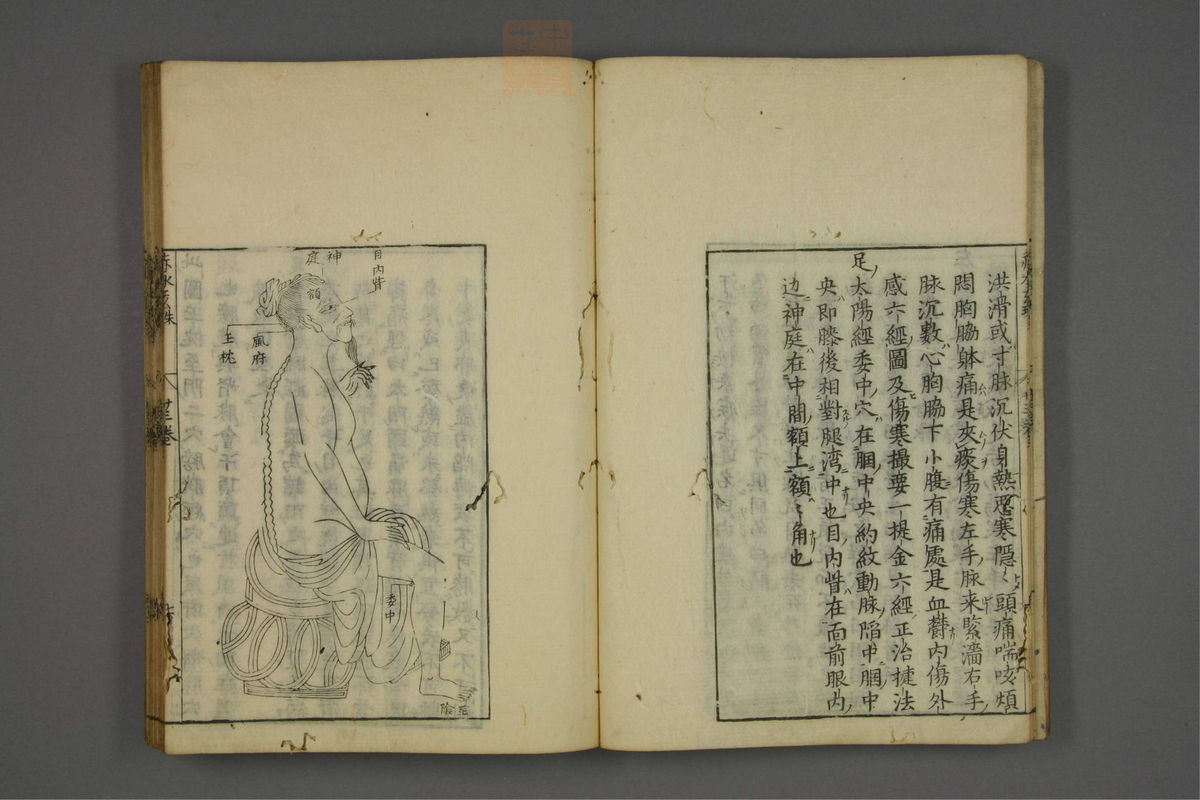 洪滑或寸脉沉伏身熱惡寒隱〻頭痛喘咳煩
悶胸脇躰痛是夾痰傷寒左手脉来緊濇右手
脉沉數心胸脇下小腹有痛處是血欝内傷外
感六經圖及傷寒撮要一提金六經正治捷法
足太陽經委中穴在膕中央約紋動脉陷中膕中
央即膝後相對腿湾中也目内眥在面前眼内
边神庭在中間額上額〻角也
目内眥
神庭
額
風府
玉枕
委中
至陰